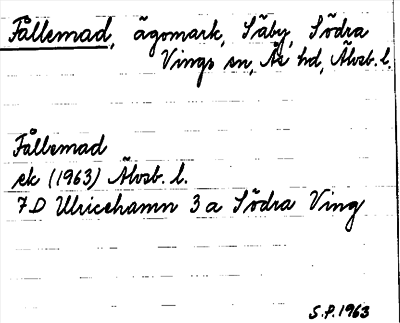 Fållemad, ägomark, Säby, Södra
Vings sn, Ås hd, Älvsb. l.
Fållemad
ek (1963) Älvsb. l.
7D Ulricehamn 3a Södra Ving
S.P. 1963